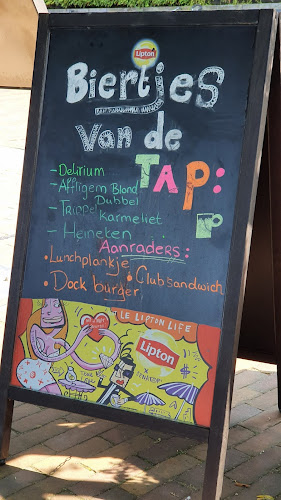 Lipton
Biertjes
Van de
TAP:
- Delirium
- Affligem Blond
Dubbel
- Trippel Karmeliet
- Heineken
Aanraders:
• Lunchplankje
• Clubsandwich
• Dock burger
LE LIPTON LIFE
Lipton
X